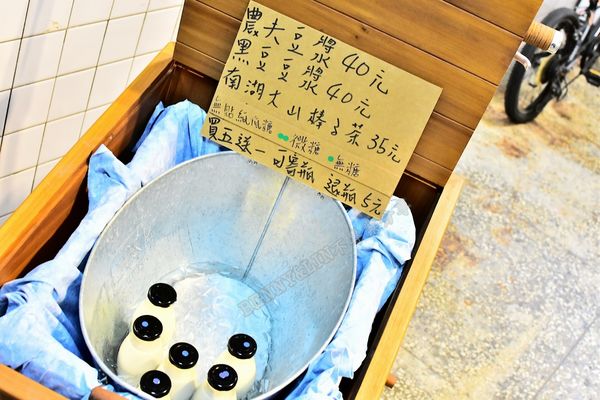 農夫豆漿 40元
黑豆豆漿 40元
南湖大山棒子茶 35元
無糖
買五送一 可寄瓶 退瓶5元